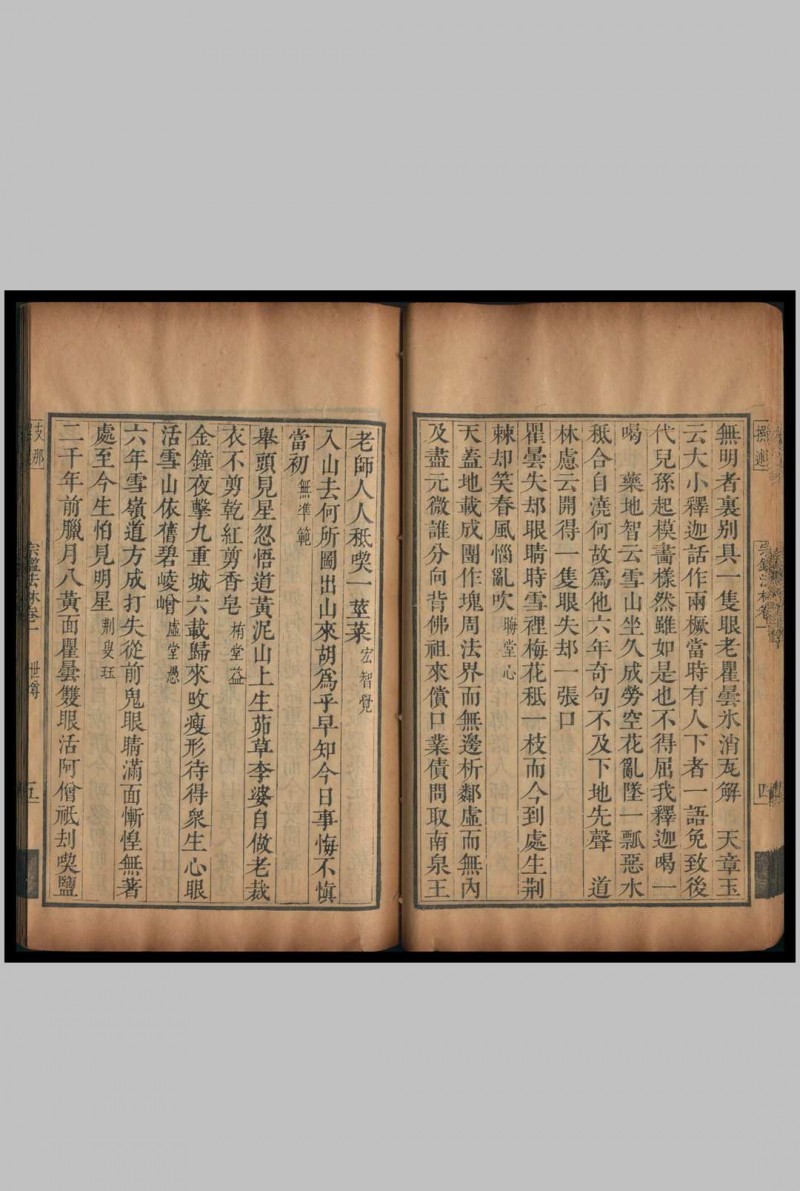 無明者裏別具一隻眼老瞿曇氷消瓦解　天章玉
云大小釋迦話作兩橛當時有人下者一語免致後
代兒孫起模畵樣然雖如是也不得屈我釋迦喝一
喝　藥地智云雪山坐久成勞空花亂墜一瓢惡水
秪合自澆何故爲他六年奇句不及下地先聲　道
林慮云開得一隻眼失却一張口
瞿曇失却眼睛時雪裡梅花秪一枝而今到處生荆
棘却笑春風惱亂吹 晦堂心
天蓋地載成團作塊周法界而無邊析鄰虛而無內
及盡元微誰分向背佛祖來償口業債問取南泉王
四
老師人人秪喫一莖菜 宏智覺
入山去何所圖出山來胡爲乎早知今日事悔不愼
當初 無準範
舉頭見星忽悟道黃泥山上生茆草李婆自做老裁
衣不剪乾紅剪香皂 栯堂益
金鐘夜擊九重城六載歸來改瘦形待得衆生心眼
活雪山依舊碧崚嶒 虛堂愚
六年雪嶺道方成打失從前鬼眼睛滿面慚惶無著
處至今生怕見明星 荆叟珏
二千年前臘月八黃面瞿曇雙眼活阿僧祇刦喫鹽
支那
宗鑑法林卷一　世尊　五